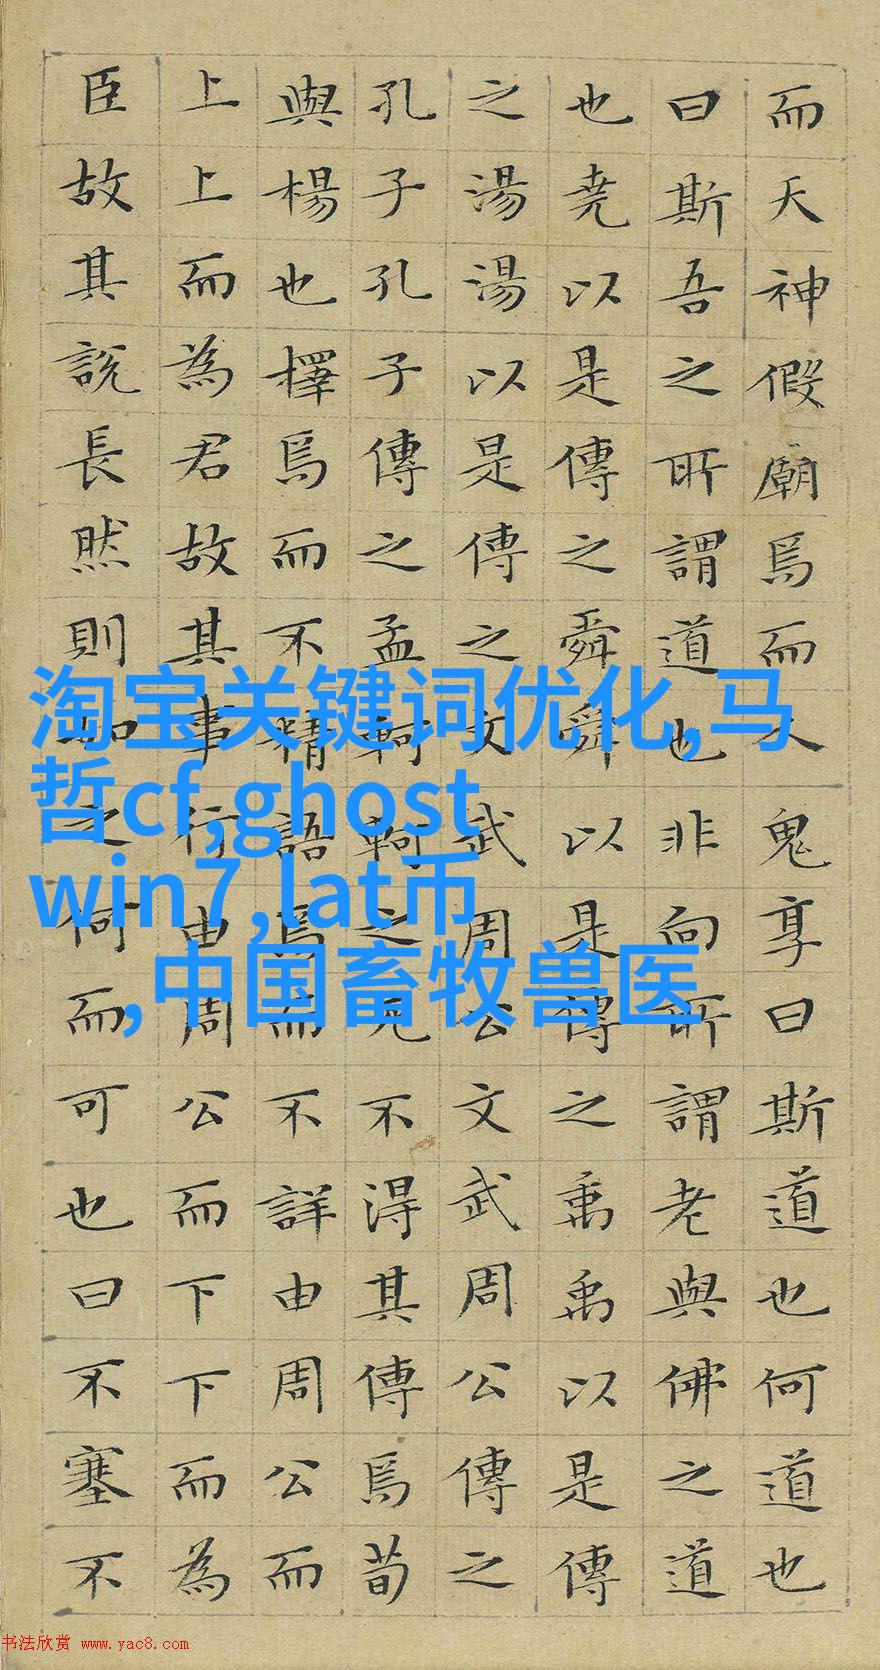 而天神假廟焉而人鬼享曰斯道也何道也
曰斯吾之所謂道也非向所謂老與佛之道
也堯以是傳之舜舜以是傳之禹禹以是傳
之湯湯以是傳之文武周公文武周公傳之
孔子孔子傳之孟軻軻之死不得其傳焉荀
與楊也擇焉而不精語焉而不詳由周公而
上上而為君故其事行由周公而下下而為
臣故其說長然則如之何而可也曰不塞不
淘宝关键词优化,马
哲cf,ghost
win7,lat币
,中国畜牧兽医
书法欣赏 www.yac8.com